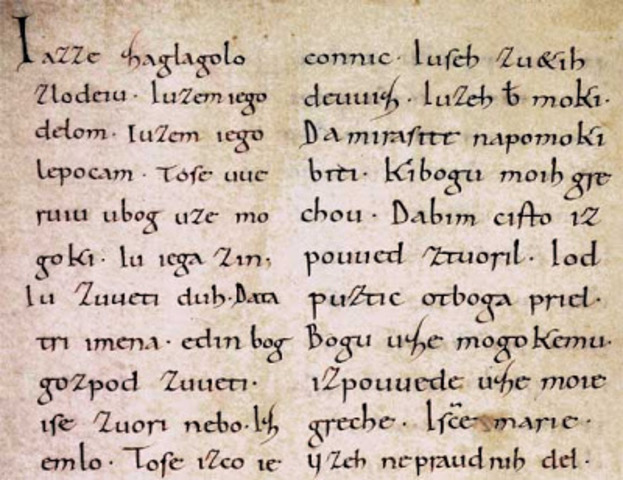 Iazze zaglagolo
zlodeiu · Iuzem iego
delom · Iuzem iego
lepocam · Tose uue
ruiu ubog uze mo
goki · Iu iega zin,
Iu zuueti duh · Data
tri imena · edin bog
gozpod zuueti ·
ise zuori nebo · Is
emlo · Tose izco ie
connic · Iuseh zu&ih
deuuiz · Iuzeh ƀ moki ·
Da mirasite napomoki
biti · Kibogu moih gre
chou · Dabim cisto iz
pouued ztuoril · Iod
puztic otboga priel ·
Bogu uze mogokemu ·
izpouuede uze moie
greche · Isce marie ·
uzeh nepraudnih del ·